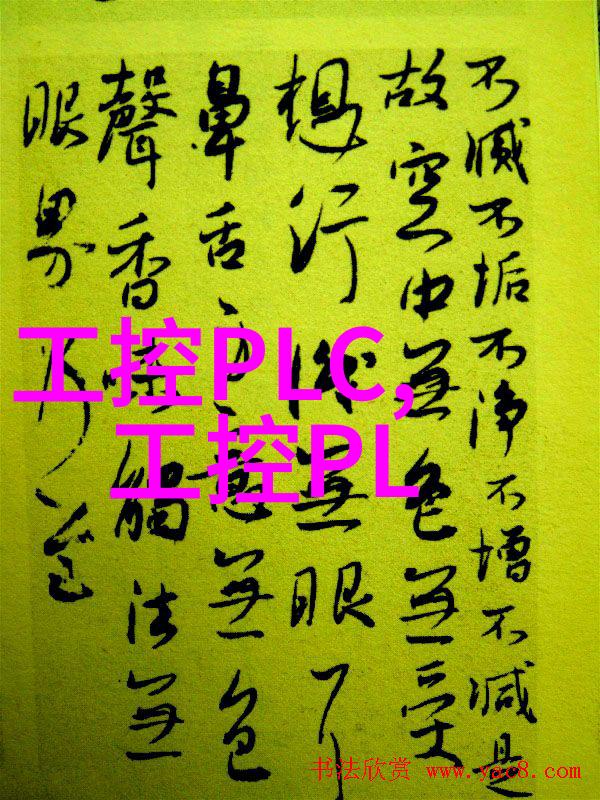 不滅不垢不淨不增不減是
故空中無色無受
想行識無眼耳
鼻舌身意無色
聲香味觸法無
眼界乃至
工控PLC,
工控PL
书法欣赏 www.yac8.com